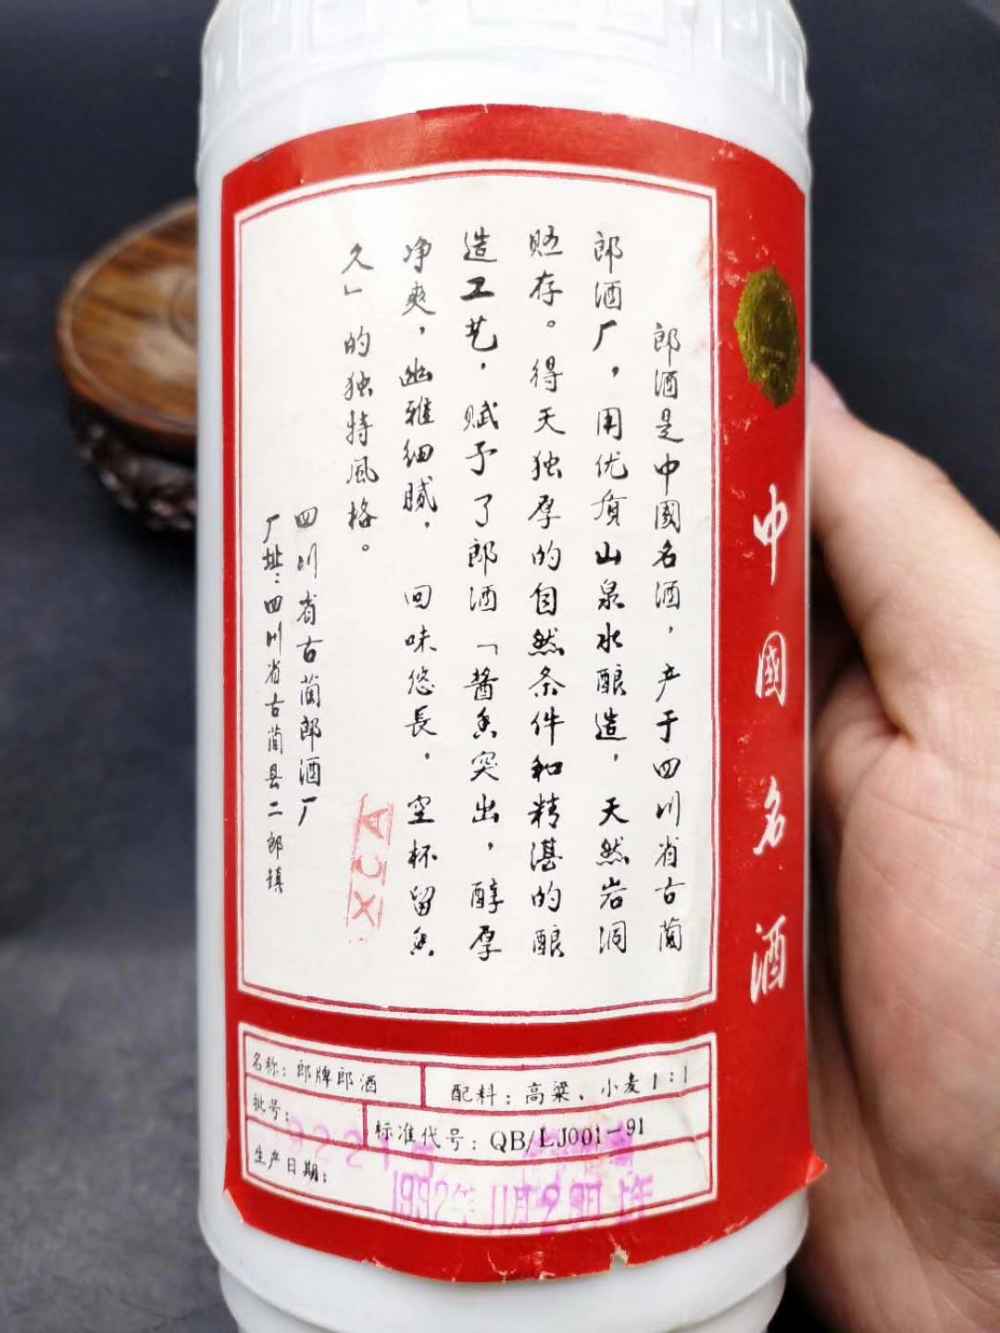 中國名酒
郎酒是中國名酒，产于四川省古蔺
郎酒厂，用优质山泉水酿造，天然岩洞
贮存。得天独厚的自然条件和精湛的酿
造工艺，赋予了郎酒「酱香突出，醇厚
净爽，幽雅细腻，回味悠長，空杯留香
久」的独特風格。
四川省古蔺郎酒厂
厂址：四川省古蔺县二郎镇
XCA
名称：郎牌郎酒
配料：高粱、小麦1:1
批号：
标准代号：QB/LJ001-91
生产日期：
1992年11月